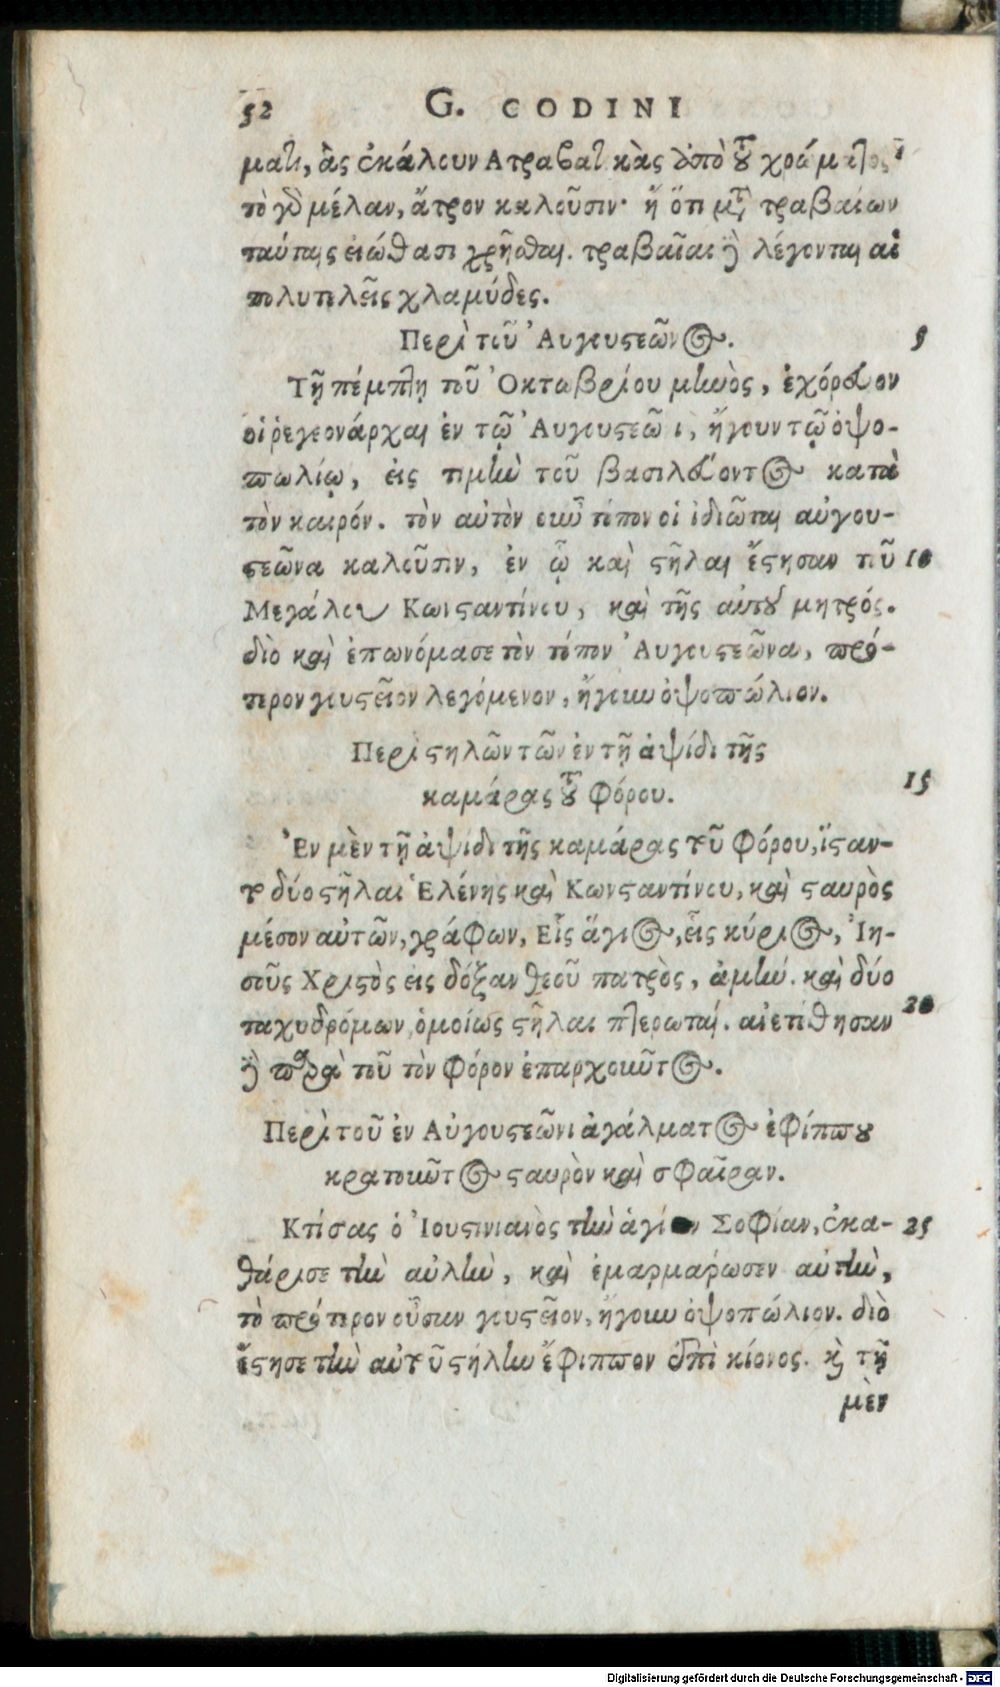 52 G. CODINI
ματι, ἃς ἐκάλουν Ατραβατικὰς ἀπὸ τοῦ χρώματος·
τὸ γὰρ μέλαν, ἄτρον καλοῦσιν· ἢ ὅτι μετὰ τραβαίων
ταύταις εἰώθασι χρῆσθαι. τραβαῖαι δὲ λέγονται αἱ
πολυτελεῖς χλαμύδες.
Περὶ τοῦ Αὐγουστεῶνος. 5
Τῇ πέμπτῃ τοῦ Ὀκτωβρίου μηνὸς, ἐχόρευον
οἱ ῥεγεονάρχαι ἐν τῷ Αὐγουστεῶνι, ἤγουν τῷ ὀψο-
πωλίῳ, εἰς τιμὴν τοῦ βασιλεύοντος κατὰ
τὸν καιρόν. τὸν αὐτὸν οὖν τόπον οἱ ἰδιῶται αὐγου-
στεῶνα καλοῦσιν, ἐν ᾧ καὶ στῆλαι ἔστησαν τοῦ 10
Μεγάλου Κωνσταντίνου, καὶ τῆς αὐτοῦ μητρός.
διὸ καὶ ἐπωνόμασε τὸν τόπον Αὐγουστεῶνα, πρό-
τερον γουστεῖον λεγόμενον, ἤγουν ὀψοπώλιον.
Περὶ στηλῶν τῶν ἐν τῇ ἀψίδι τῆς
καμάρας τοῦ Φόρου. 15
Ἐν μὲν τῇ ἀψίδι τῆς καμάρας τοῦ Φόρου, ἵσταν-
το δύο στῆλαι Ἑλένης καὶ Κωνσταντίνου, καὶ σταυρὸς
μέσον αὐτῶν, γράφων, Εἷς ἅγιος, εἷς κύριος, Ἰη-
σοῦς Χριστὸς εἰς δόξαν θεοῦ πατρὸς, ἀμήν. καὶ δύο
ταχυδρόμων ὁμοίως στῆλαι πτερωταί. αἳ ἐτίθησαν 20
δὲ παρὰ τοῦ τὸν Φόρον ἐπαρχοῦντος.
Περὶ τοῦ ἐν Αὐγουστεῶνι ἀγάλματος ἐφίππου
κρατοῦντος σταυρὸν καὶ σφαῖραν.
Κτίσας ὁ Ἰουστινιανὸς τὴν ἁγίαν Σοφίαν, ἐκα- 25
θάρισε τὴν αὐλὴν, καὶ ἐμαρμάρωσεν αὐτὴν,
τὸ πρότερον οὖσαν γουστεῖον, ἤγουν ὀψοπώλιον. διὸ
ἔστησε τὴν αὐτοῦ στήλην ἔφιππον ἐπὶ κίονος. καὶ τῇ
μὲν
Digitalisierung gefördert durch die Deutsche Forschungsgemeinschaft - DFG